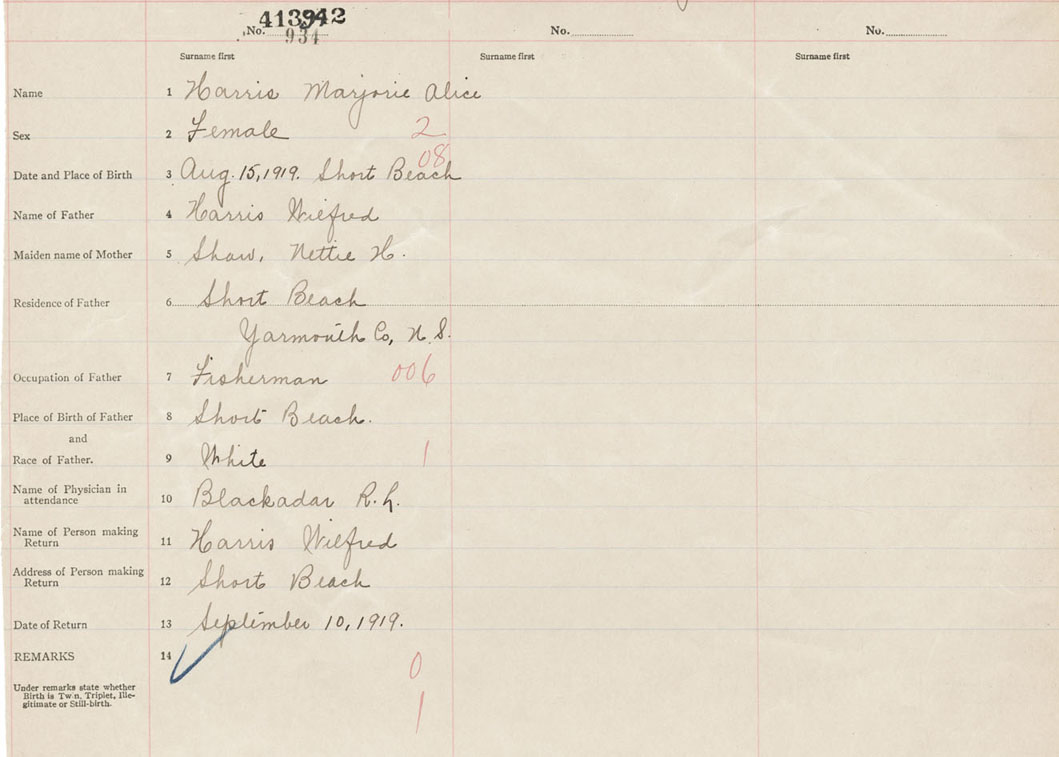 No.
934
No.
No.
Surname first
Surname first
Surname first
Name 1 Harris Marjorie Alice
Sex 2 Female 2
08
Date and Place of Birth 3 Aug. 15, 1919. Short Beach
Name of Father 4 Harris Wilfred
Maiden name of Mother 5 Shaw, Nettie H.
Residence of Father 6 Short Beach
Yarmouth Co, N.S.
Occupation of Father 7 Fisherman 006
Place of Birth of Father 8 Short Beach.
and
Race of Father. 9 White 1
Name of Physician in
attendance 10 Blackadar R. L.
Name of Person making
Return 11 Harris Wilfred
Address of Person making
Return 12 Short Beach
Date of Return 13 September 10, 1919.
REMARKS 14
0
Under remarks state whether
Birth is Twin, Triplet, Ille-
gitimate or Still-birth.
1